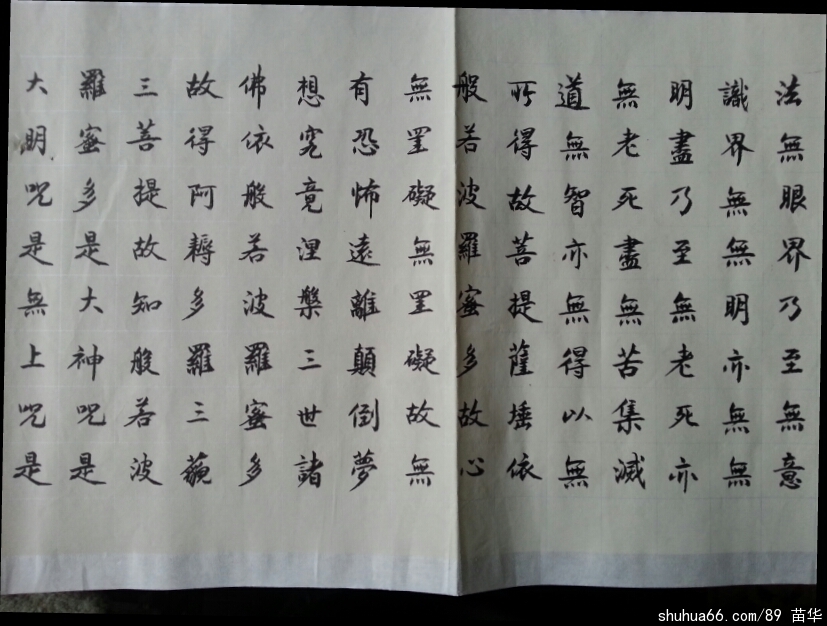 法無眼界乃至無意
識界無無明亦無無
明盡乃至無老死亦
無老死盡無苦集滅
道無智亦無得以無
所得故菩提薩埵依
般若波羅蜜多故心
無罣礙無罣礙故無
有恐怖遠離顛倒夢
想究竟涅槃三世諸
佛依般若波羅蜜多
故得阿耨多羅三藐
三菩提故知般若波
羅蜜多是大神咒是
大明咒是無上咒是
shuhua66.com/89 苗华